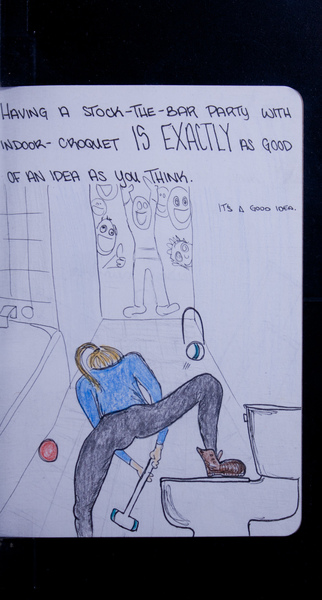 HAVING A STOCK-THE-BAR PARTY WITH
INDOOR-CROQUET IS EXACTLY AS GOOD
OF AN IDEA AS YOU THINK.
IT'S A GOOD IDEA.